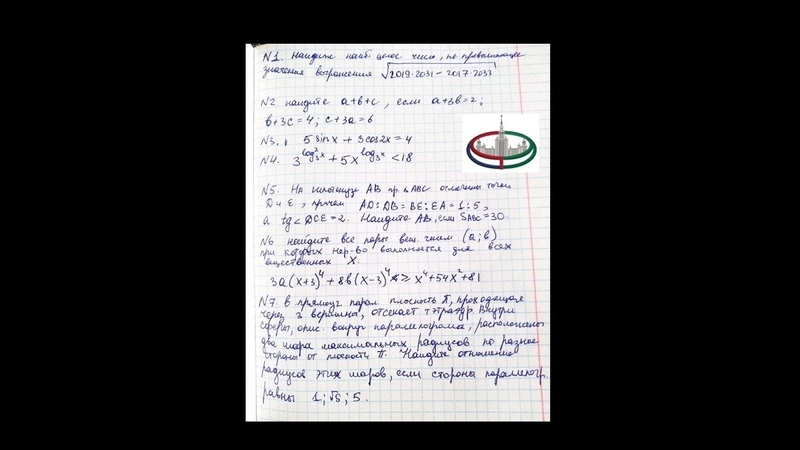 N1. Найдите наиб. целое число, не превышающее
значения выражения √2019·2031 - 2017·2033
N2 найдите a+b+c, если a+3b=2;
b+3c=4; c+3a=6
N3. 5 sinx + 3cos2x = 4
N4. 3^log₃²x + 5x^log₃x < 18
N5. На гипотенузе AB пр. Δ ABC отмечены точки
D и E, причем AD:DB = BE:EA = 1:5,
а tg∠DCE = 2. Найдите AB, если SABC = 30.
N6 найдите все пары вещ. чисел (a;b)
при которых нер-во выполняется для всех
вещественных X.
3a(x+3)⁴ + 8b(x-3)⁴ ≥ x⁴+54x²+81
N7. В прямоуг парал. плоскость П, проходящая
через 3 вершины, отсекает тэтраэдр. Внутри
сферы, опис. вокруг параллелограма, расположены
два шара максимальных радиусов по разные
стороны от плоскости П. Найдите отношение
радиусов этих шаров, если стороны параллелогр.
равны 1; √5; 5.